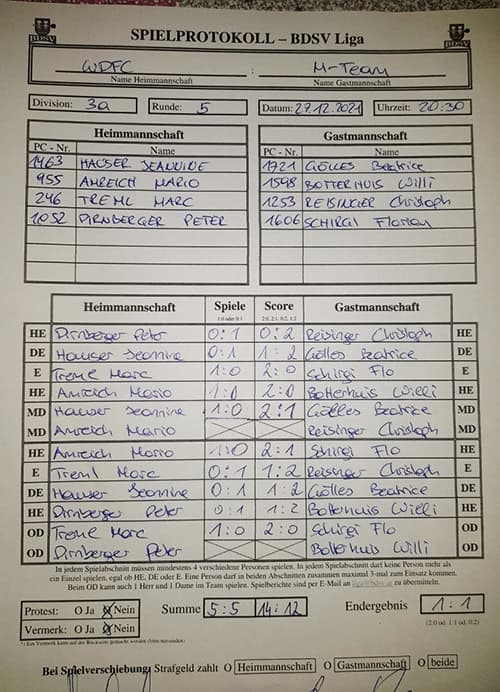 BDSV
SPIELPROTOKOLL – BDSV Liga
BDSV
WDFC : M-Team
Name Heimmannschaft Name Gastmannschaft
Division: 3a Runde: 5 Datum: 27.12.2021 Uhrzeit: 20:30
Heimmannschaft Gastmannschaft
PC - Nr. Name PC - Nr. Name
1463 HAUSER JEANNINE 1721 GÖLLES Beatrice
955 AMREICH MARIO 1598 BOTTERHUIS Willi
246 TREML MARC 1253 REISINGER Christoph
1052 PIRNBERGER PETER 1606 SCHIRGI Florian
Heimmannschaft Spiele Score Gastmannschaft
1:0 oder 0:1 2:0, 2:1, 0:2, 1:2
HE Pirnberger Peter 0:1 0:2 Reisinger Christoph HE
DE Hauser Jeannine 0:1 1:2 Gölles Beatrice DE
E Treml Marc 1:0 2:0 Schirgi Flo E
HE Amreich Mario 1:0 2:0 Botterhuis Willi HE
MD Hauser Jeannine 1:0 2:1 Gölles Beatrice MD
MD Amreich Mario Reisinger Christoph MD
HE Amreich Mario 1:0 2:1 Schirgi Flo HE
E Treml Marc 0:1 1:2 Reisinger Christoph E
DE Hauser Jeannine 0:1 1:2 Gölles Beatrice DE
HE Pirnberger Peter 0:1 1:2 Botterhuis Willi HE
OD Treml Marc 1:0 2:0 Schirgi Flo OD
OD Pirnberger Peter Botterhuis Willi OD
In jedem Spielabschnitt müssen mindestens 4 verschiedene Personen spielen. In jedem Spielabschnitt darf keine Person mehr als
ein Einzel spielen, egal ob HE, DE oder E. Eine Person darf in beiden Abschnitten zusammen maximal 3-mal zum Einsatz kommen.
Beim OD kann auch 1 Herr und 1 Dame im Team spielen. Spielberichte sind per E-Mail an zu übermitteln.
Protest: O Ja O Nein Summe 5:5 14:12 Endergebnis 1:1
Vermerk: O Ja O Nein (2:0 od. 1:1 od. 0:2)
*) Ein Vermerk kann auf der Rückseite gemacht werden (bitte umwenden)
Bei Spielverschiebung: Strafgeld zahlt O Heimmannschaft O Gastmannschaft O beide